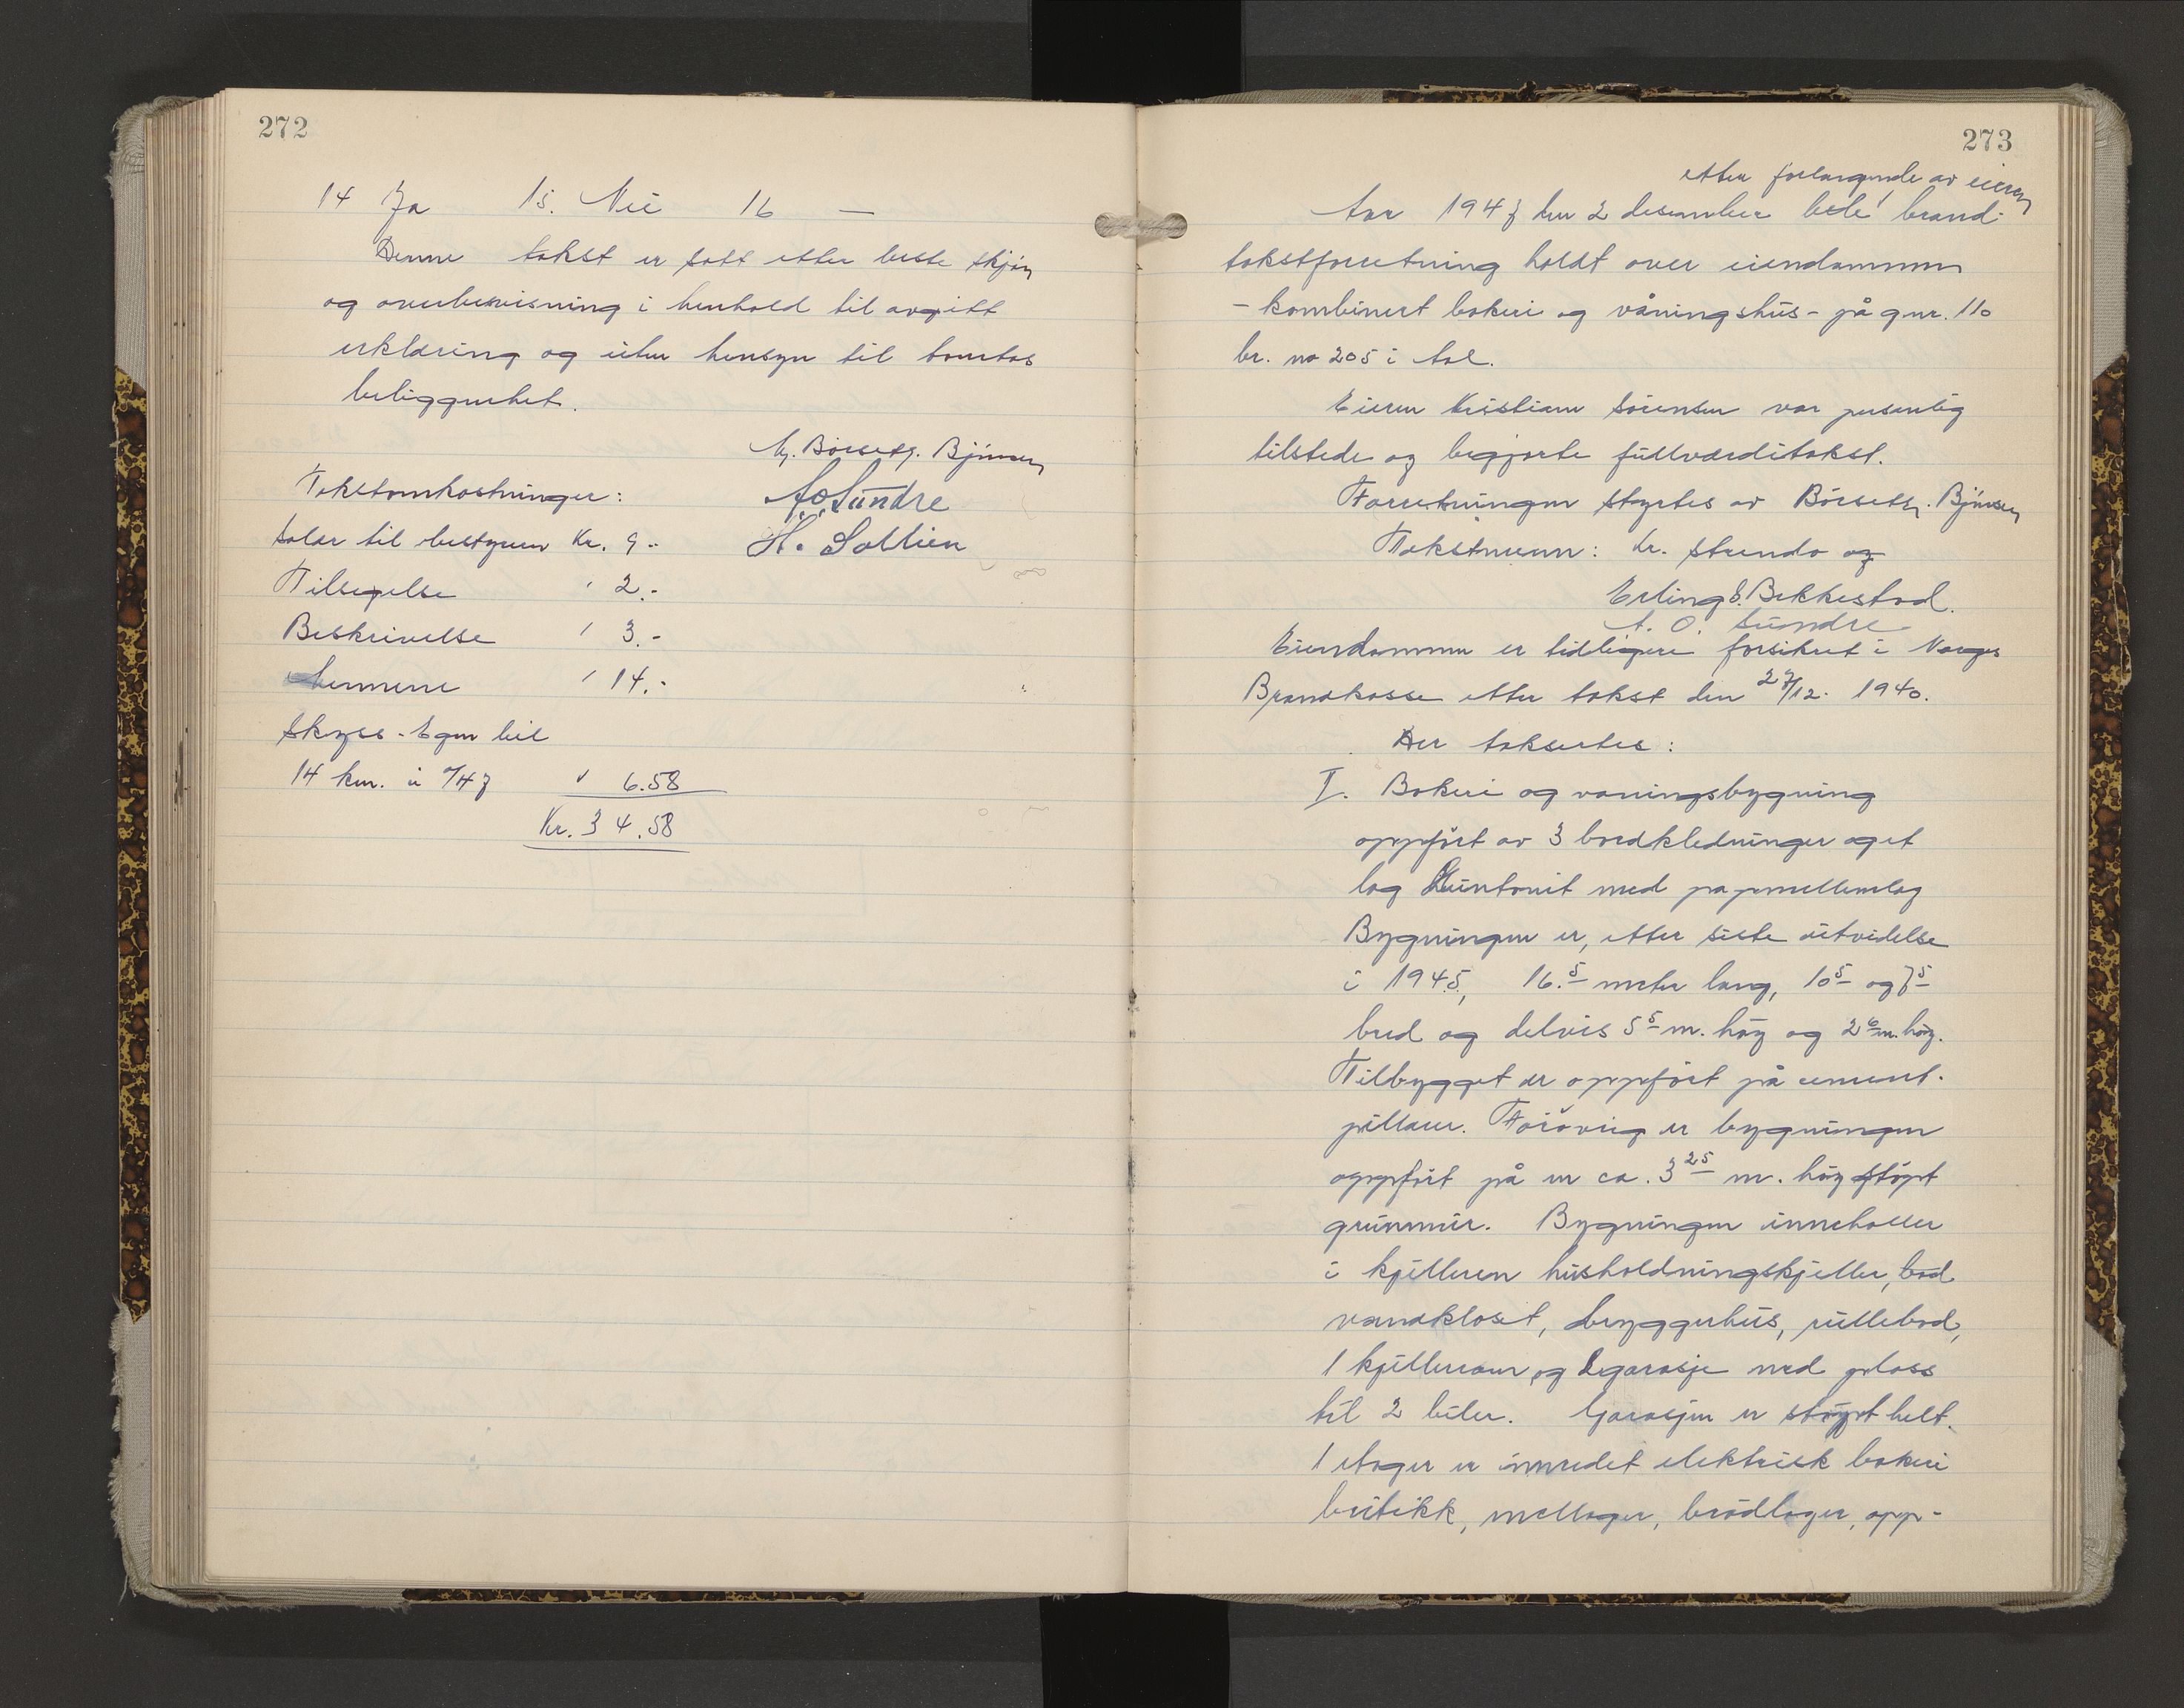 272
14 Ja 15. Nei 16 —
Denne takst er satt etter beste skjøn
og overbevisning i henhold til avgitt
erklæring og uten hensyn til tomtas
beliggenhet.
M. Børseth. Bjørnsen
Takstomkostninger:
A.O. Sundre
Salær til bestyrer Kr. 9.-
H. Sollien
Tilsigelse " 2.-
Beskrivelse " 3.-
Mennene " 14.-
Skyss - Egen bil
14 km. a 0/47 " 6.58
Kr. 34.58
273
etter forlangende av eieren
Aar 1947 den 2 desember ble brand-
takstforretning holdt over eiendommen
- kombinert bakeri og våningshus - på gnr. 110
br. no 205 i Aal.
Eieren Kristian Sørensen var personlig
tilstede og begjærte fullverditakst.
Forretningen styrtes av Børseth. Bjørnsen
Takstmenn: Kr. Strendo og
Erling S. Bekkestad.
A. O. Sundre
Eiendommen er tidligere forsikret i Norges
Brandkasse etter takst den 27/12. 1940.
Der taksertes:
I. Bakeri og vaningsbygning
oppført av 3 bordkledninger og et
lag Huntonit med papmellemlag
Bygningen er, etter siste utvidelse
i 1945, 16.5 meter lang, 10 5 og 7 5
bred og delvis 5 5 m. høy og 2 6 m. høy.
Tilbygget er oppført på cement-
pillarer. Forøvrig er bygningen
oppført på en ca. 3 25 m. høy støpt
grunnmur. Bygningen inneholler
i kjelleren husholdningskjeller, bad
vandkloset, bryggerhus, rullebod,
1 kjellerrum og garasje med plass
til 2 biler. Garasjen er støypt helt.
1 etager er innredet elektrisk bakeri
butikk, mellager, brødlager, opp-